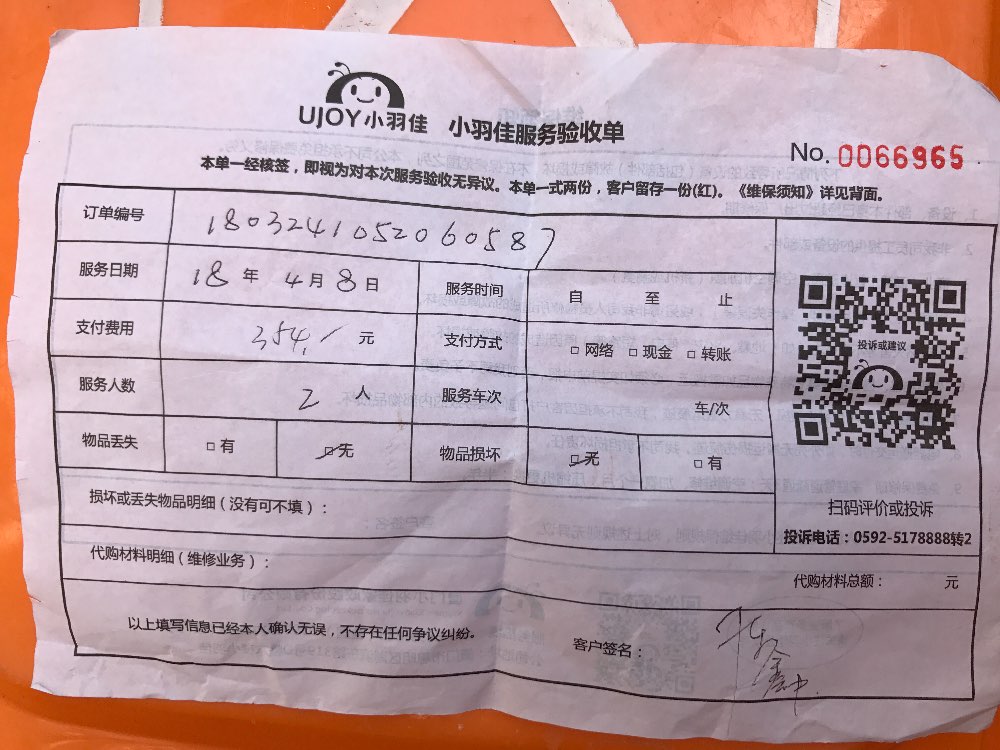 UJOY小羽佳 小羽佳服务验收单
No. 0066965
本单一经核签，即视为对本次服务验收无异议。本单一式两份，客户留存一份(红)。《维保须知》详见背面。
订单编号 1803241052060587
服务日期 18 年 4 月 8 日 服务时间 自 至 止
支付费用 354.- 元 支付方式 □网络 □现金 □转账
服务人数 2 人 服务车次 车/次
物品丢失 □有 ☑无 物品损坏 ☑无 □有
投诉或建议
扫码评价或投诉
投诉电话：0592-5178888转2
损坏或丢失物品明细（没有可不填）：
代购材料明细（维修业务）：
代购材料总额： 元
以上填写信息已经本人确认无误，不存在任何争议纠纷。
客户签名：